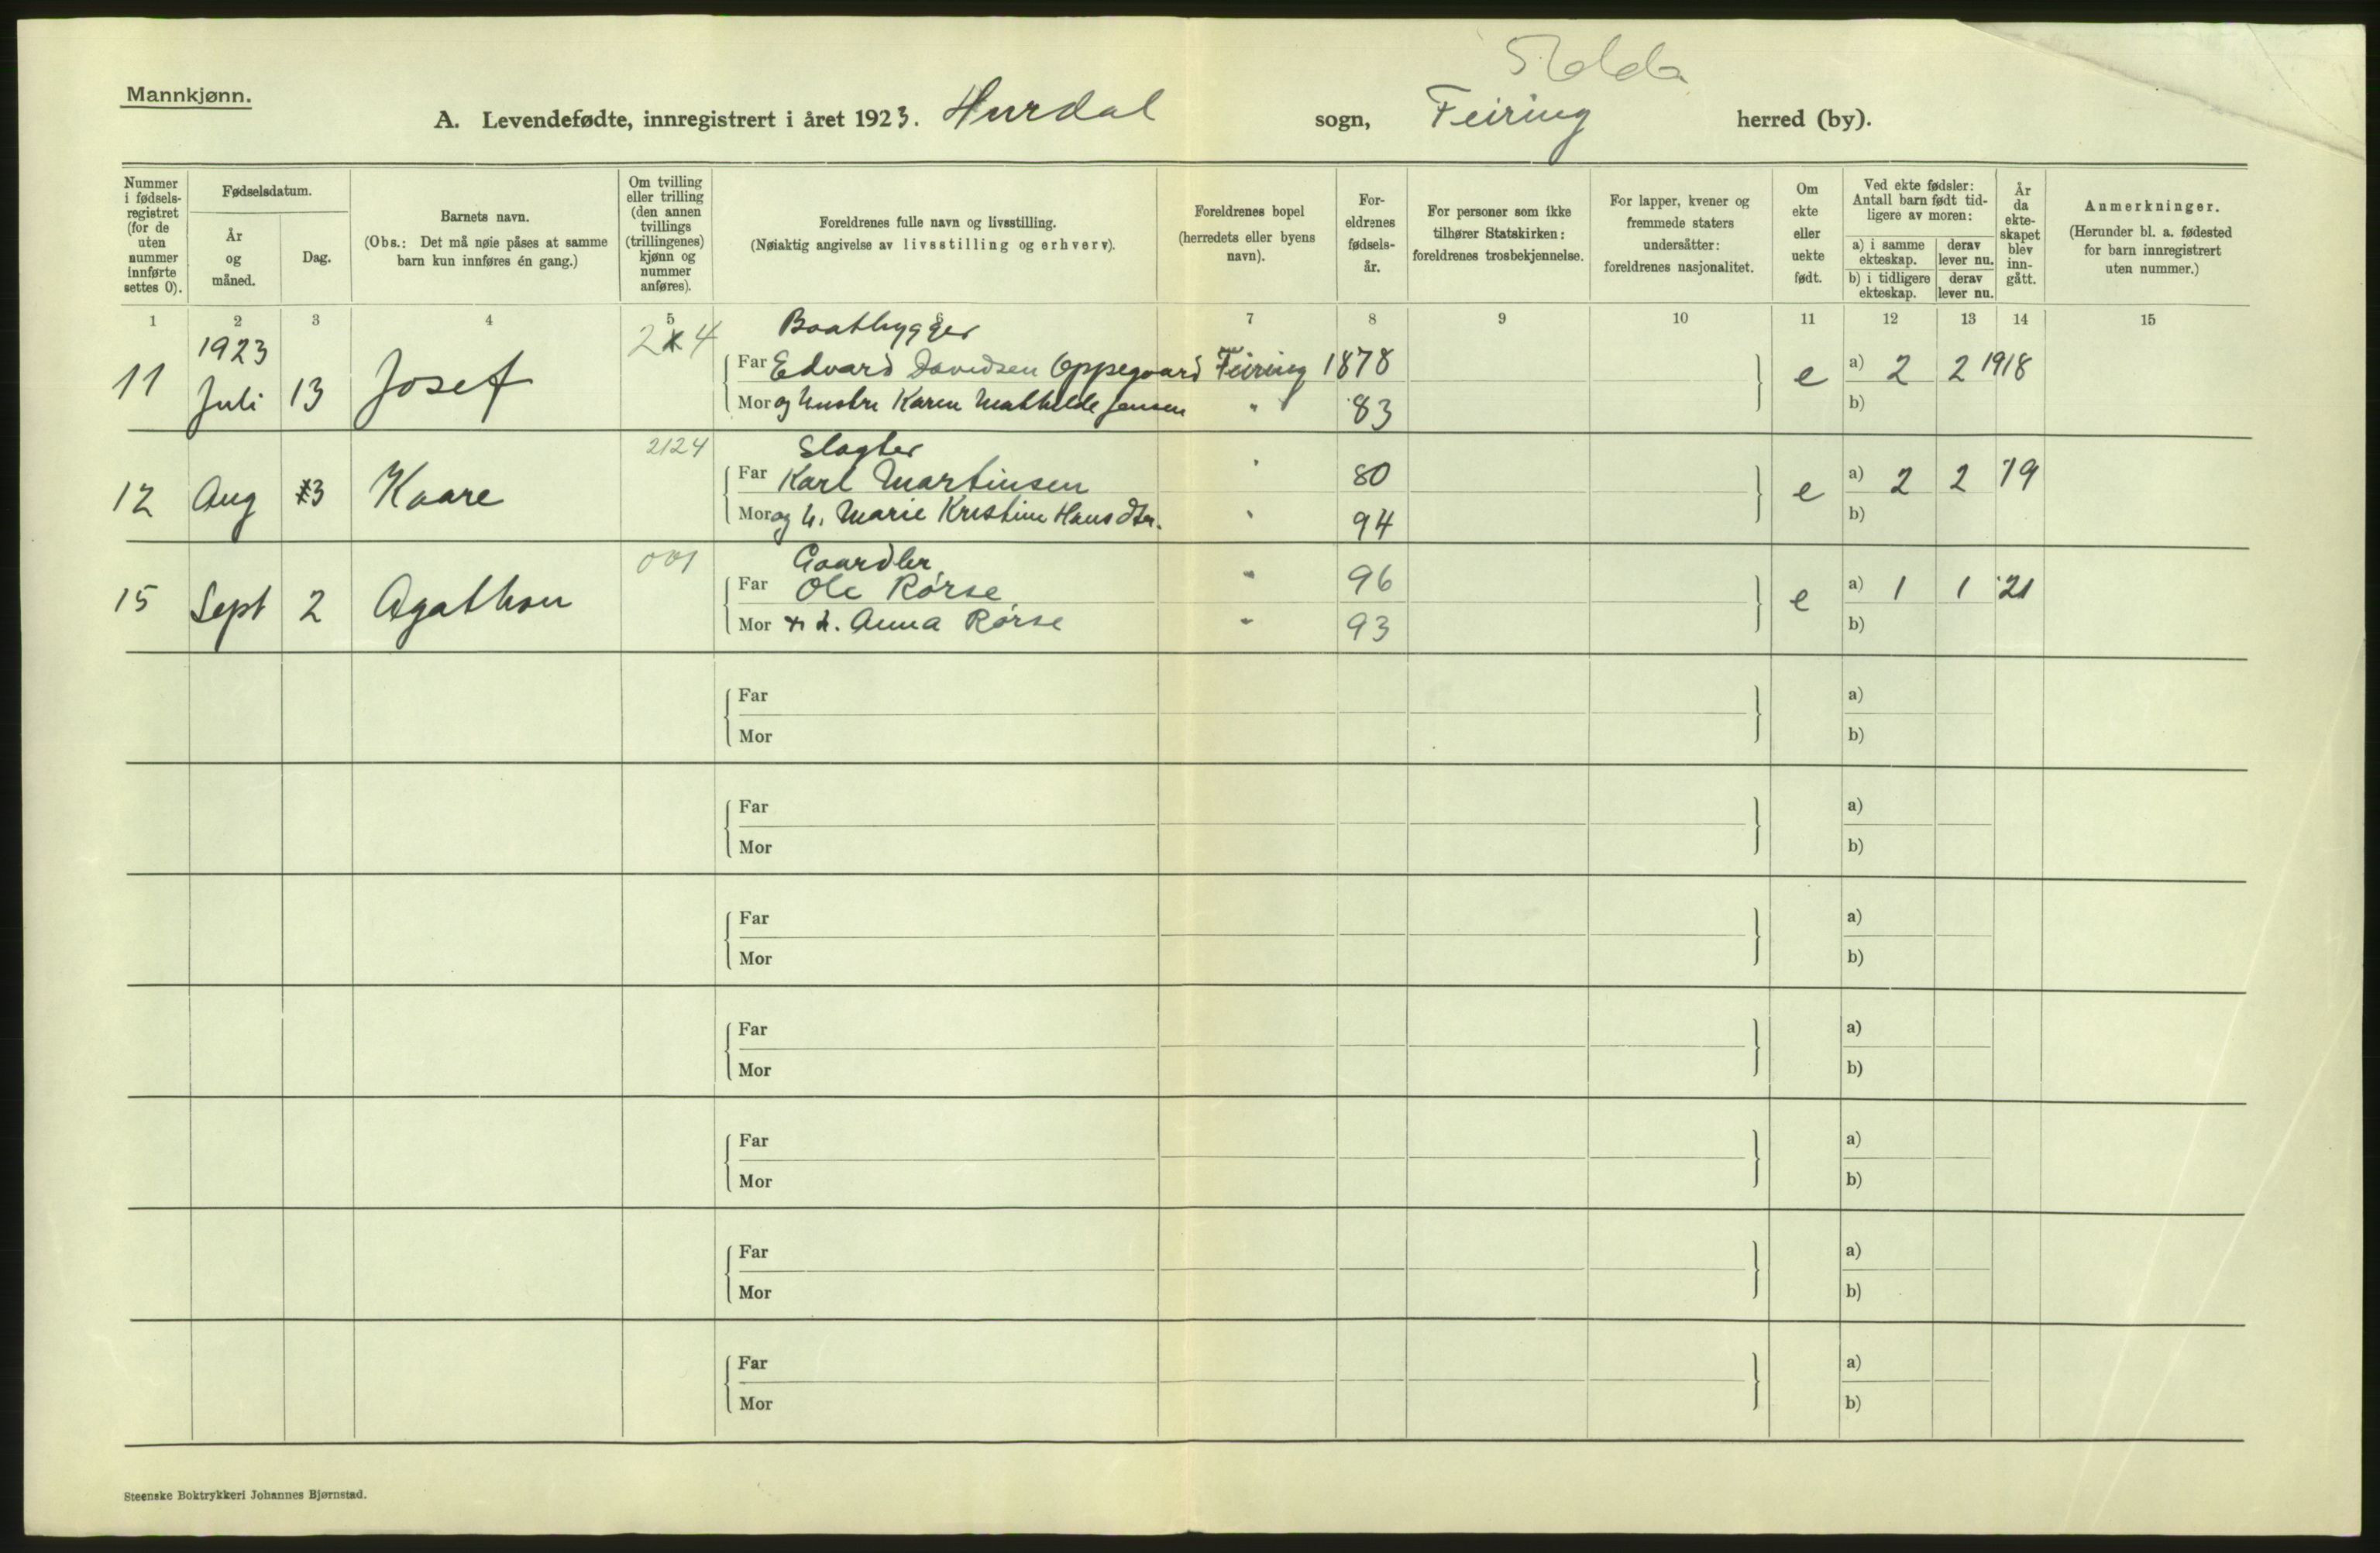 Mannkjønn.
A. Levendefødte, innregistrert i året 1923. Hurdal sogn, Feiring herred (by).
Nummer i fødsels-registret (for de uten nummer innførte settes 0).
Fødselsdatum.
År og måned.
Dag.
Barnets navn.
(Obs.: Det må nøie påses at samme barn kun innføres én gang.)
Om tvilling eller trilling (den annen tvillings (trillingenes) kjønn og nummer anføres).
Foreldrenes fulle navn og livsstilling.
(Nøiaktig angivelse av livsstilling og erhverv).
Foreldrenes bopel (herredets eller byens navn).
For-eldrenes fødsels-år.
For personer som ikke tilhører Statskirken: foreldrenes trosbekjennelse.
For lapper, kvener og fremmede staters undersåtter: foreldrenes nasjonalitet.
Om ekte eller uekte født.
Ved ekte fødsler: Antall barn født tid-ligere av moren:
a) i samme ekteskap.
derav lever nu.
b) i tidligere ekteskap.
derav lever nu.
År da ekte-skapet blev inn-gått.
Anmerkninger.
(Herunder bl. a. fødested for barn innregistrert uten nummer.)
1 2 3 4 5 6 7 8 9 10 11 12 13 14 15
1923
Baatbygger
11 Juli 13 Josef Far Edvard Davidsen Oppegaard Feiring 1878 e a) 2 2 1918
Mor og hustru Karen Mathilde Jensen " 83 b)
2124 Slagter
12 Aug 3 Kaare Far Karl Martinsen " 80 e a) 2 2 19
Mor og h. Marie Kristine Hansdtr. " 94 b)
001 Gaardbr
15 Sept 2 Agathon Far Ole Rørse " 96 e a) 1 1 21
Mor h. Anna Rørse " 93 b)
Far a)
Mor b)
Far a)
Mor b)
Far a)
Mor b)
Far a)
Mor b)
Far a)
Mor b)
Far a)
Mor b)
Far a)
Mor b)
Steenske Boktrykkeri Johannes Bjørnstad.